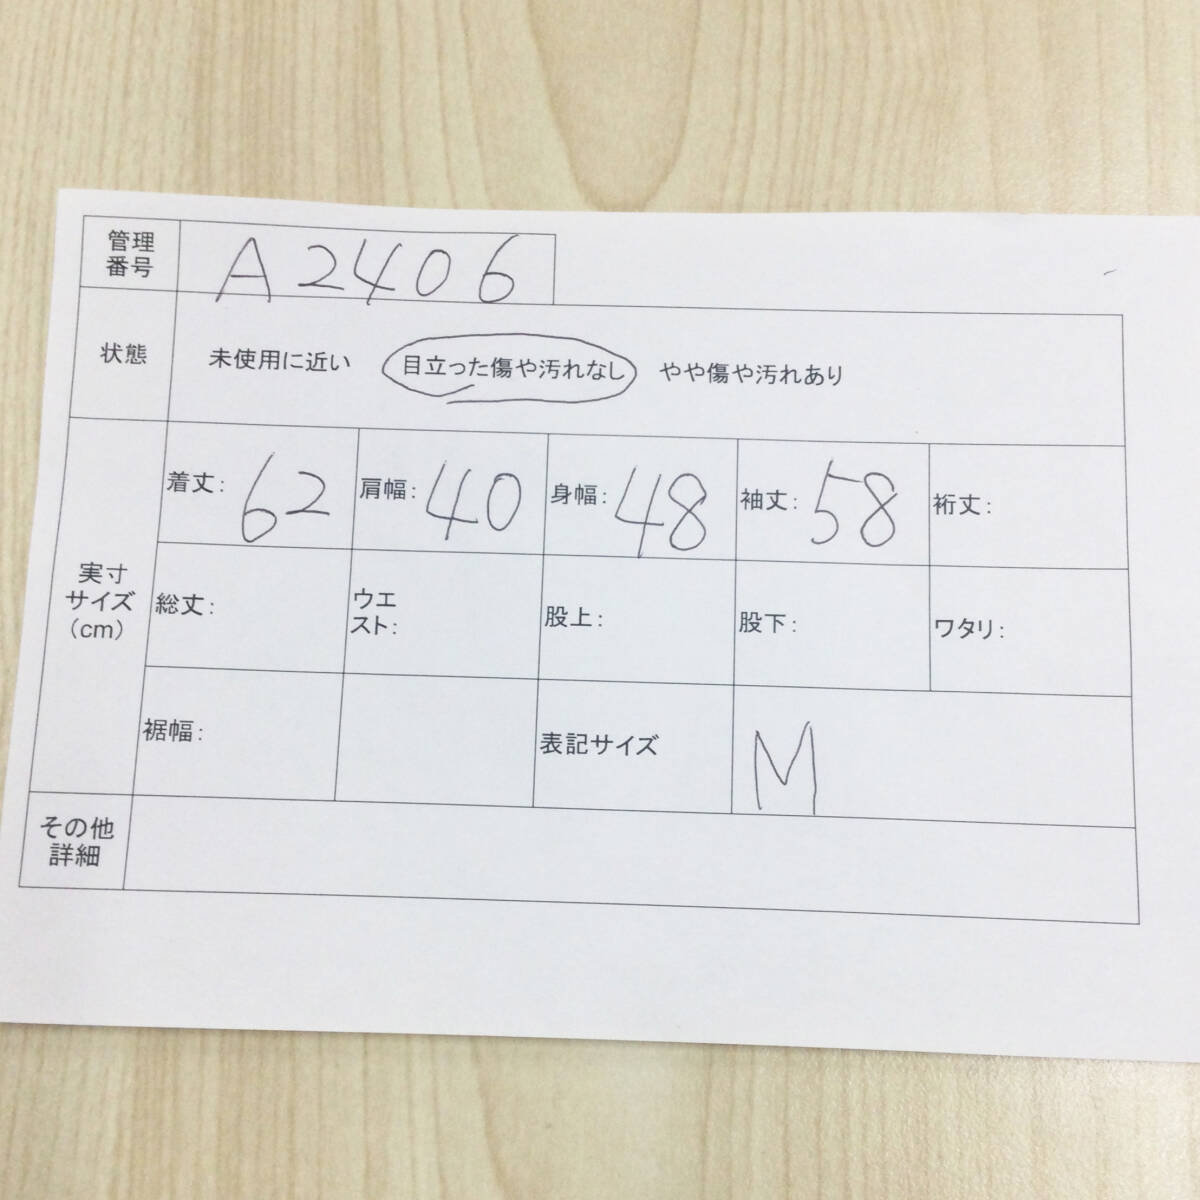 管理
番号
A2406
状態
未使用に近い 目立った傷や汚れなし やや傷や汚れあり
実寸
サイズ
(cm)
着丈: 62 肩幅: 40 身幅: 48 袖丈: 58 裄丈:
総丈: ウエ
スト: 股上: 股下: ワタリ:
裾幅: 表記サイズ M
その他
詳細